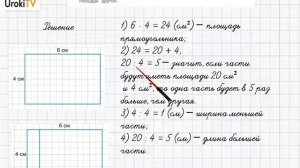 UrokiTV
площадь другой.
Решение
6 см
4 см
6 см
4 см
1) 6 · 4 = 24 (см²) – площадь
прямоугольника;
2) 24 = 20 + 4.
20 : 4 = 5 – значит, если части
будут иметь площади 20 см²
и 4 см², то одна часть будет в 5 раз
больше, чем другая.
3) 4 : 4 = 1 (см) – ширина меньшей
части;
4) 20 : 4 = 5 (см) – длина большей
части.